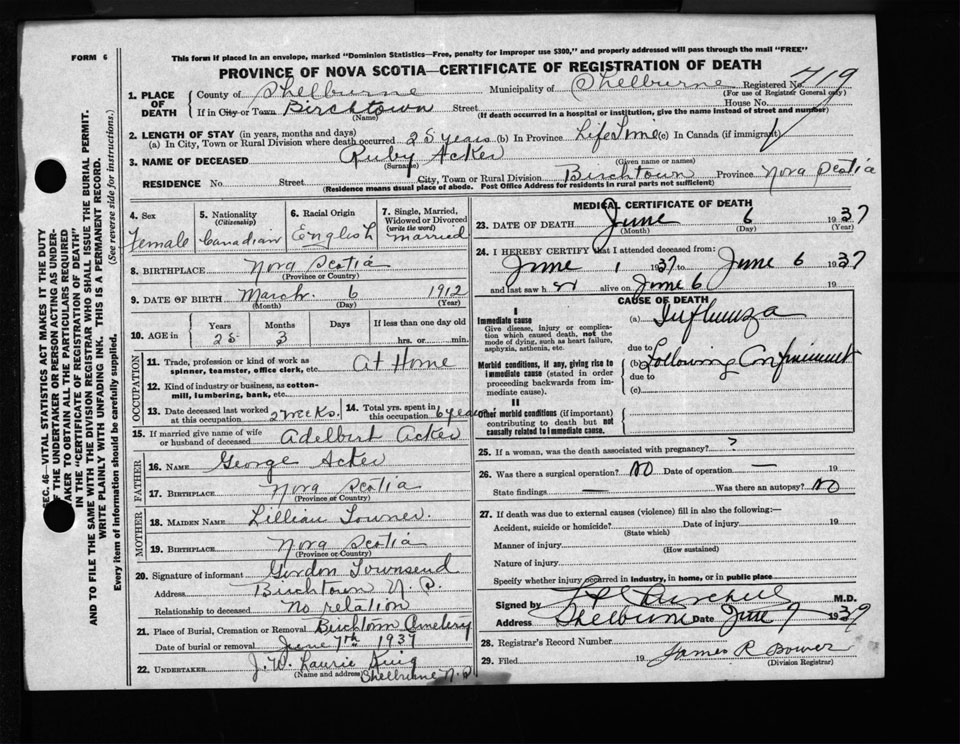 This form if placed in an envelope, marked "Dominion Statistics—Free, penalty for improper use $300," and properly addressed will pass through the mail "FREE"
FORM 6
PROVINCE OF NOVA SCOTIA—CERTIFICATE OF REGISTRATION OF DEATH
Registered No. 719
(For use of Registrar General only)
1. PLACE OF DEATH
County of Shelburne Municipality of Shelburne
If in City or Town Birchtown Street House No.
(Name) (If death occurred in a hospital or institution, give the name instead of street and number)
2. LENGTH OF STAY (in years, months and days)
(a) In City, Town or Rural Division where death occurred 25 years (b) In Province Life Time (c) In Canada (if immigrant)
3. NAME OF DECEASED Ruby Acker
(Surname) (Given name or names)
RESIDENCE No. Street City, Town or Rural Division Birchtown Province Nova Scotia
(Residence means usual place of abode. Post Office Address for residents in rural parts not sufficient)
4. Sex Female
5. Nationality (Citizenship) Canadian
6. Racial Origin English
7. Single, Married, Widowed or Divorced (write the word) married
8. BIRTHPLACE Nova Scotia
(Province or Country)
9. DATE OF BIRTH March 6 1912
(Month) (Day) (Year)
10. AGE in Years Months Days If less than one day old
25 3 hrs. or min.
OCCUPATION
11. Trade, profession or kind of work as spinner, teamster, office clerk, etc. At Home
12. Kind of industry or business, as cotton-mill, lumbering, bank, etc.
13. Date deceased last worked at this occupation 2 weeks.
14. Total yrs. spent in this occupation 6 years
15. If married give name of wife or husband of deceased Adelbert Acker
FATHER
16. NAME George Acker
17. BIRTHPLACE Nova Scotia
(Province or Country)
MOTHER
18. MAIDEN NAME Lillian Towner.
19. BIRTHPLACE Nova Scotia
(Province or Country)
20. Signature of informant Gordon Townsend
Address Birchtown N.S.
Relationship to deceased No relation
21. Place of Burial, Cremation or Removal Birchtown Cemetery
Date of burial or removal June 7th 1937
22. UNDERTAKER J. W. Laurie
(Name and address) Shelburne N.S
MEDICAL CERTIFICATE OF DEATH
23. DATE OF DEATH June 6 1937
(Month) (Day) (Year)
24. I HEREBY CERTIFY that I attended deceased from:
June 1 1937 to June 6 1937
and last saw h er alive on June 6 19
CAUSE OF DEATH
I
Immediate cause
Give disease, injury or complication which caused death, not the mode of dying, such as heart failure, asphyxia, asthenia, etc.
(a) Influenza
due to
Morbid conditions, if any, giving rise to immediate cause (stated in order proceeding backwards from immediate cause).
(b) Following Confinement
due to
(c)
II
Other morbid conditions (if important) contributing to death but not causally related to immediate cause.
25. If a woman, was the death associated with pregnancy? ?
26. Was there a surgical operation? No Date of operation — 19
State findings — Was there an autopsy? No
27. If death was due to external causes (violence) fill in also the following:—
Accident, suicide or homicide? Date of injury 19
(State which)
Manner of injury
(How sustained)
Nature of injury
Specify whether injury occurred in industry, in home, or in public place
Signed by M.D.
Address Shelburne Date June 7 1937
28. Registrar's Record Number
29. Filed 19 James R Bower
(Division Registrar)
SEC. 46—VITAL STATISTICS ACT MAKES IT THE DUTY
OF THE UNDERTAKER OR PERSON ACTING AS UNDER-
TAKER TO OBTAIN ALL THE PARTICULARS REQUIRED
IN THE "CERTIFICATE OF REGISTRATION OF DEATH"
AND TO FILE THE SAME WITH THE DIVISION REGISTRAR WHO SHALL ISSUE THE BURIAL PERMIT.
WRITE PLAINLY WITH UNFADING INK. THIS IS A PERMANENT RECORD.
Every item of information should be carefully supplied. (See reverse side for instructions.)